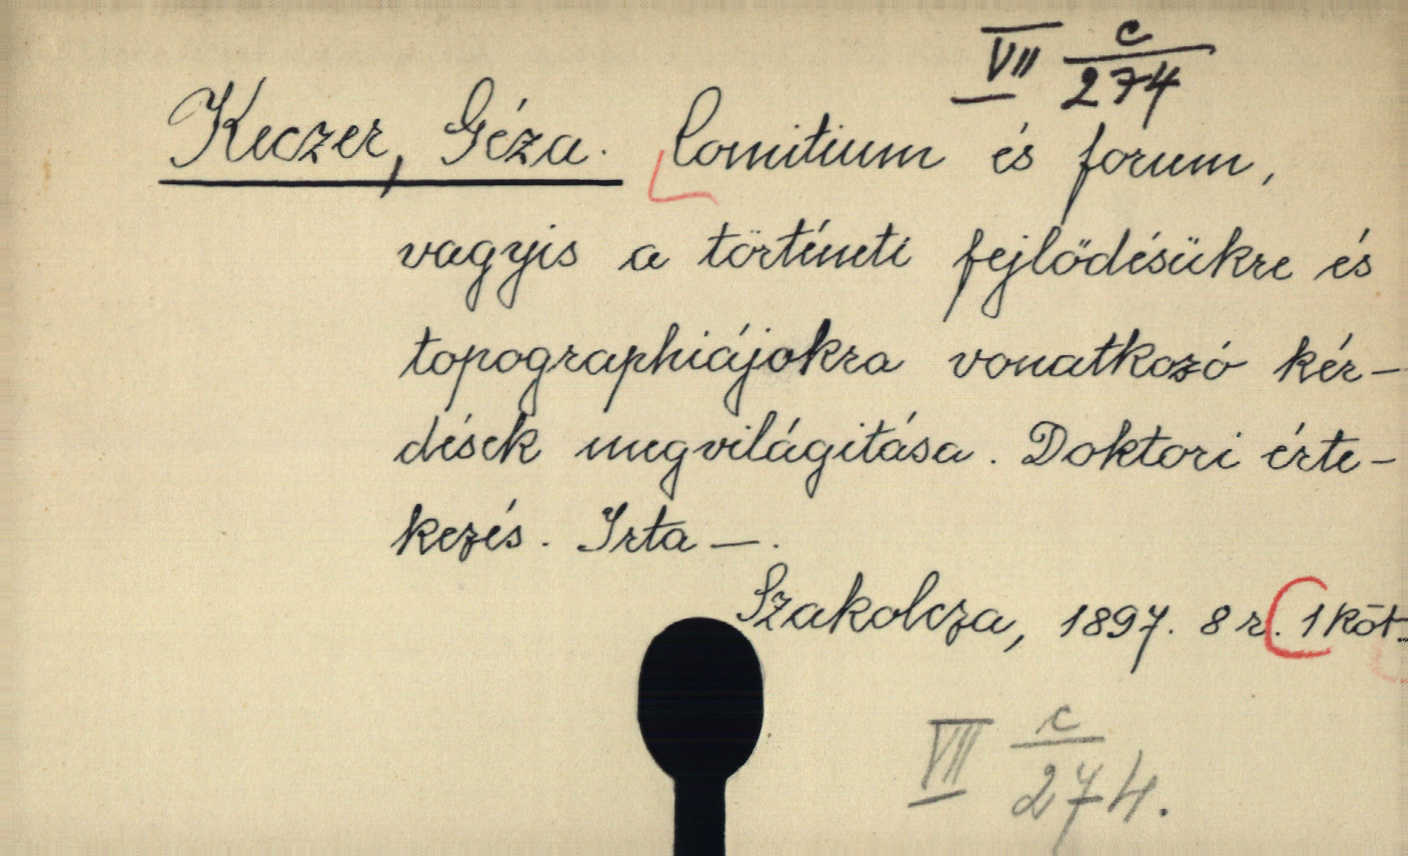 VII c/274
Keczer, Géza. Comitium és forum,
vagyis a történeti fejlődésükre és
topographiájokra vonatkozó kér-
dések megvilágitása. Doktori érte-
kezés. Irta —.
Szakolcza, 1897. 8 r. 1 köt.
VII c/274.